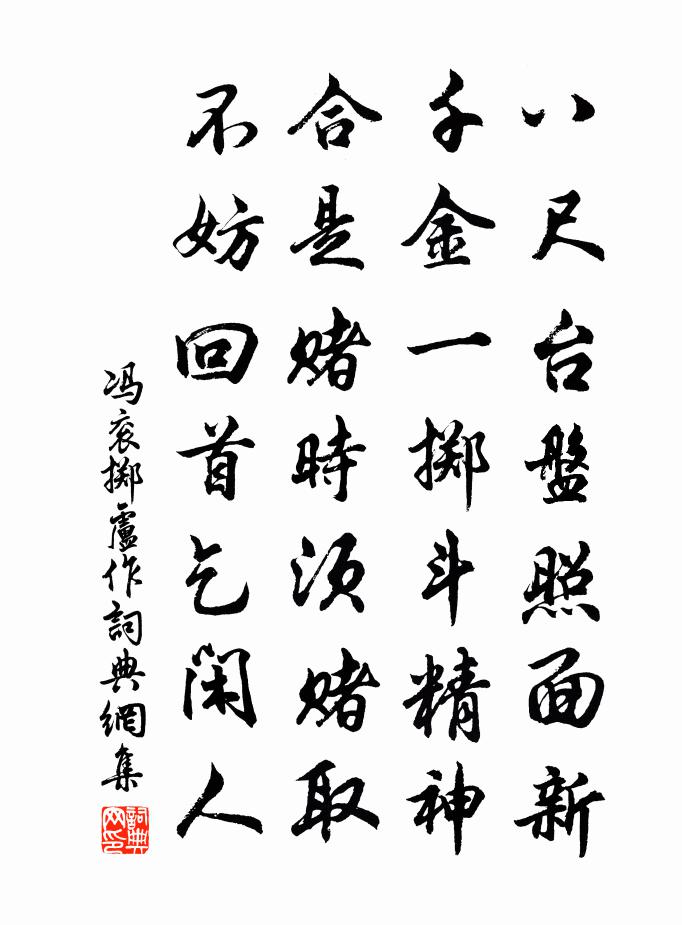 八尺台盤照面新
千金一擲斗精神
合是赌時须赌取
不妨回首乞闲人
冯衮擲盧作詞典網集
詞典
网印